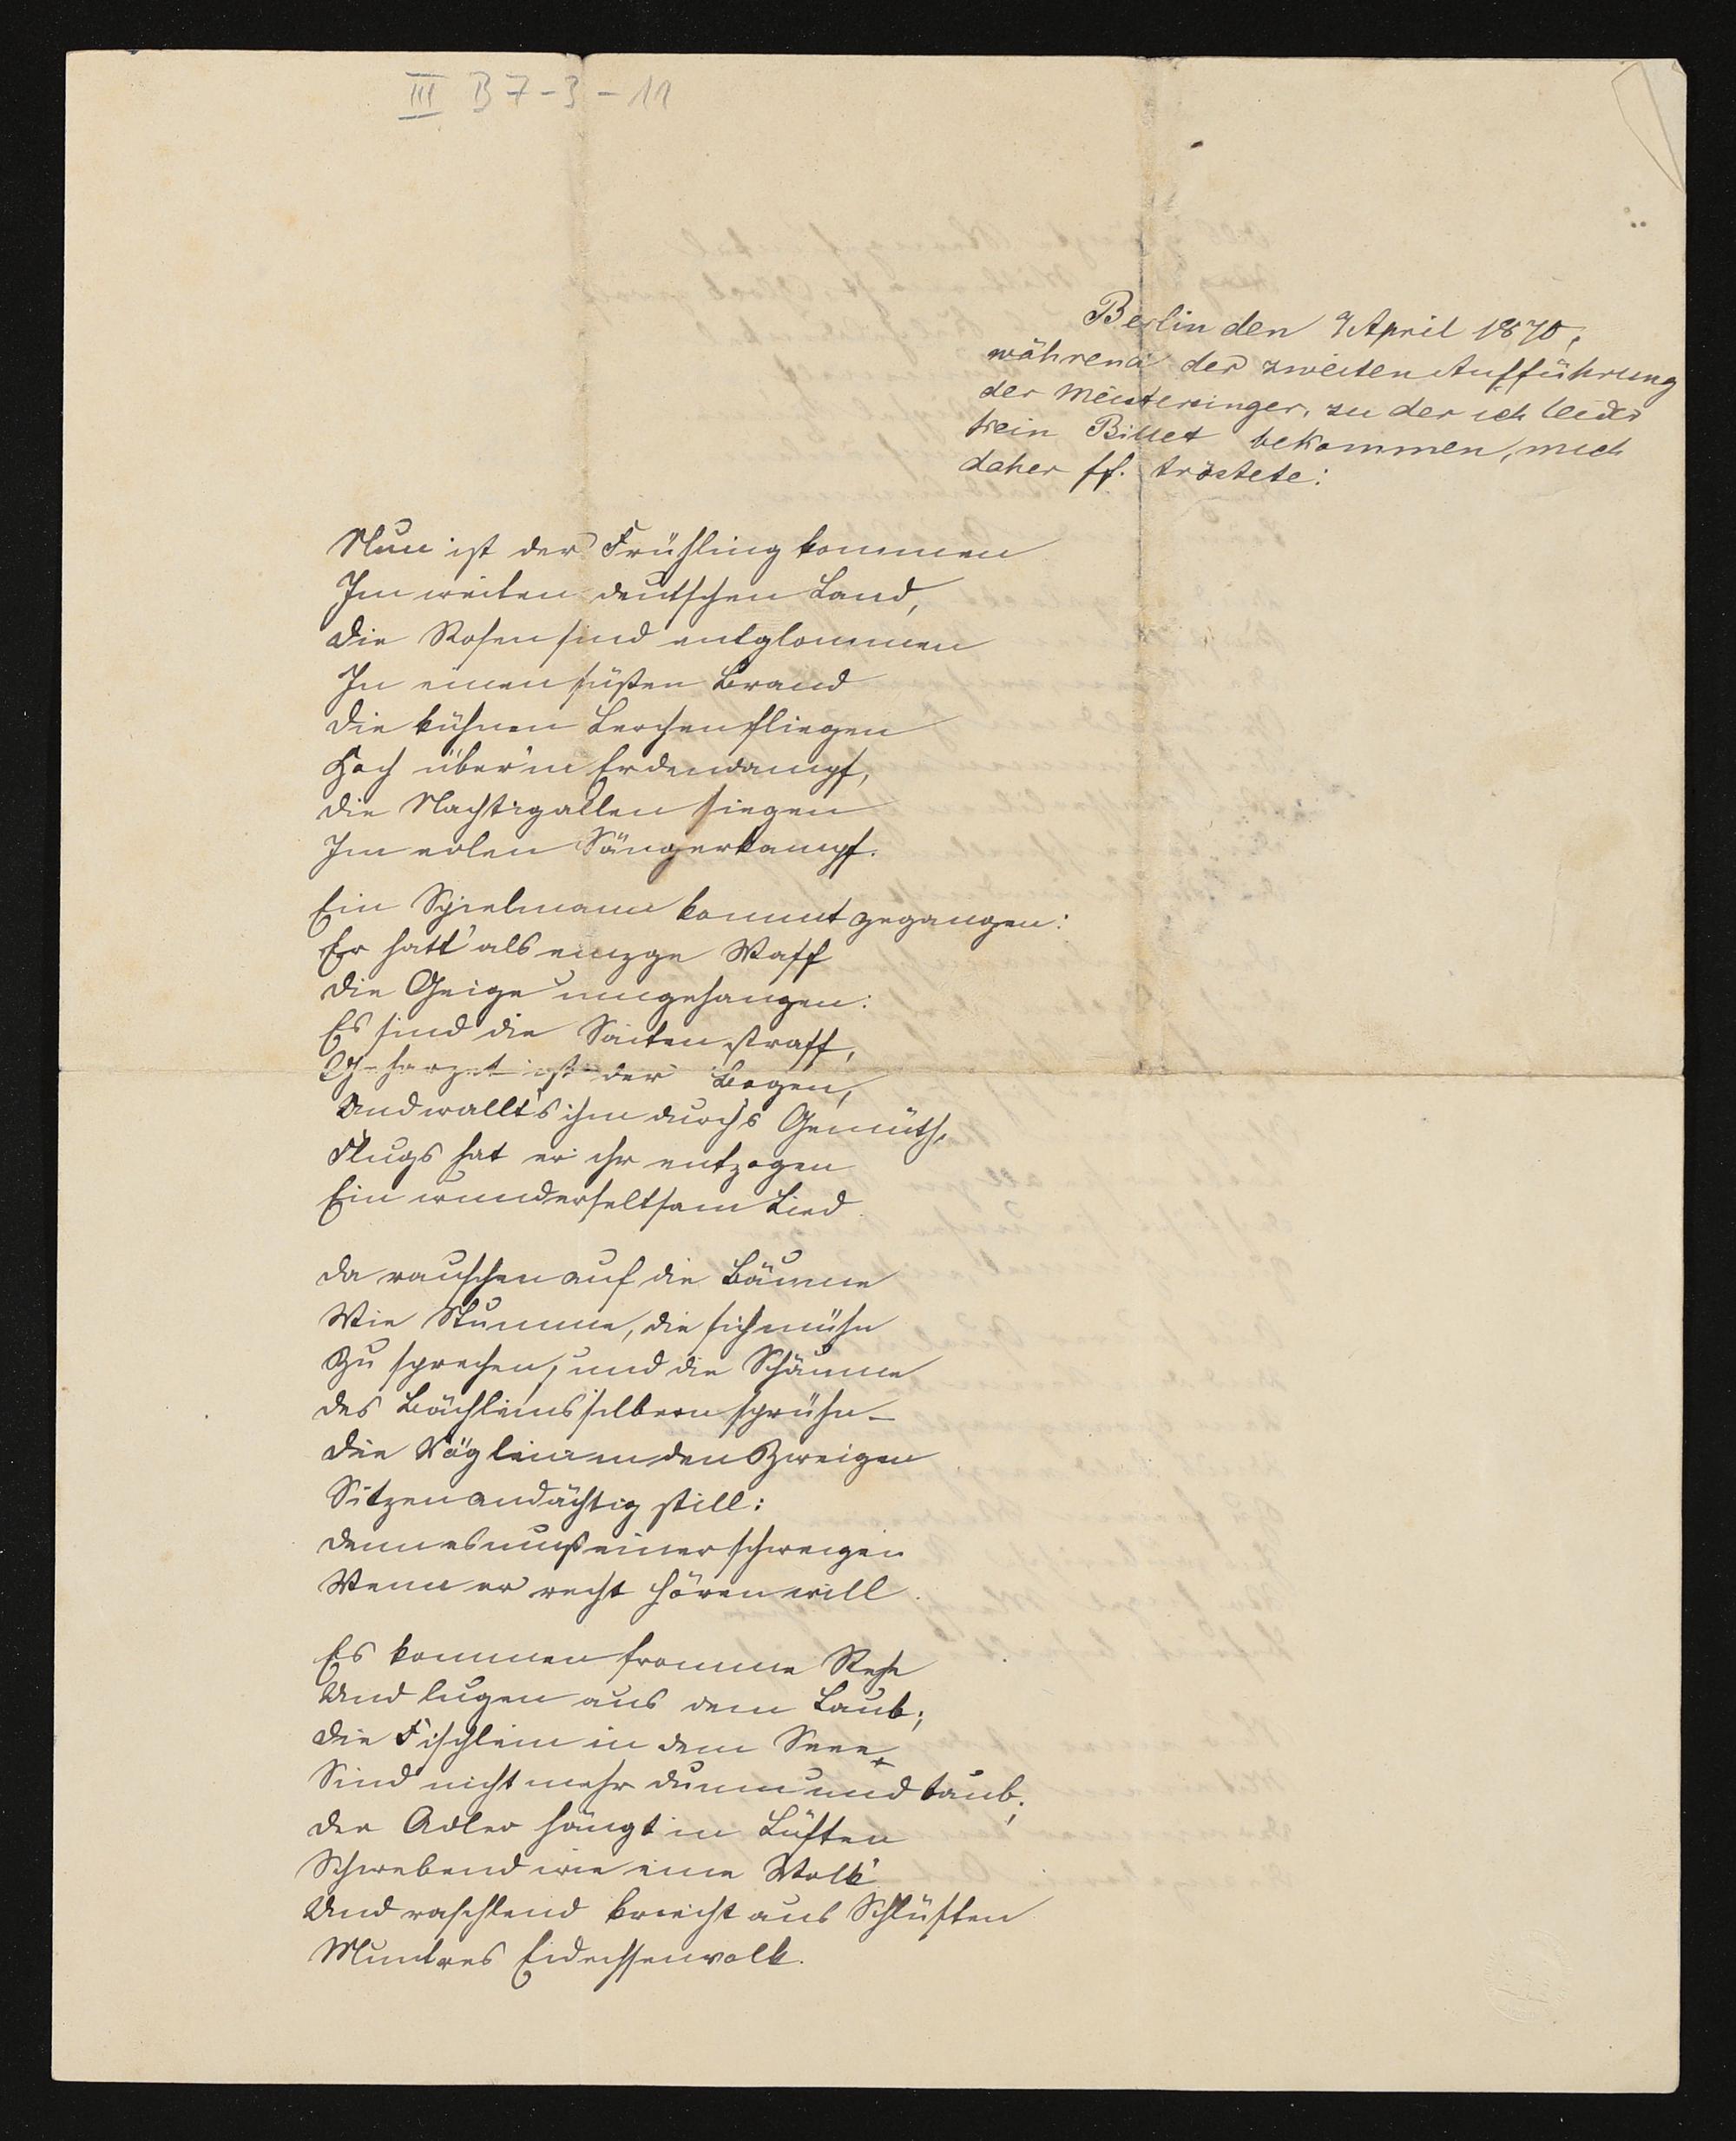 III B 7-3-11
Berlin den 9 April 1870,
während der zweiten Aufführung
der Meistersinger, zu der ich leider
kein Billet bekommen, mich
daher ff. tröstete:
Nun ist der Frühling kommen
Im weiten deutschen Land,
Die Rosen sind entglommen
In einen süßen Brand
Die kühnen Lerchen fliegen
Hoch über'm Erdendampf,
Die Nachtigallen siegen
Im edlen Sängerkampf.
Ein Spielmann kommt gegangen:
Er hatt' als einzge Waff
Die Geige umgehangen:
Es sind die Saiten straff,
Geharzet ist der Bogen,
Und wallt's ihm durch's Gemüth,
Flugs hat er ihr entzogen
Ein wunderseltsam Lied.
Da rauschen auf die Bäume
Wie Stumme, die sich mühn
Zu sprechen, und die Schäume
Des Bächleins silbern sprühn –
Die Vöglein in den Zweigen
Sitzen andächtig still:
Denn es muß einer schweigen
Wenn er recht hören will.
Es kommen fromme Rehe
Und lugen aus dem Laub;
Die Fischlein in dem Seee
Sind nicht mehr dumm und taub;
Der Adler hängt in Lüften
Schwebend wie eine Wolk'
Und raschelnd kriecht aus Schlüften
Muntres Eidechsenvolk.